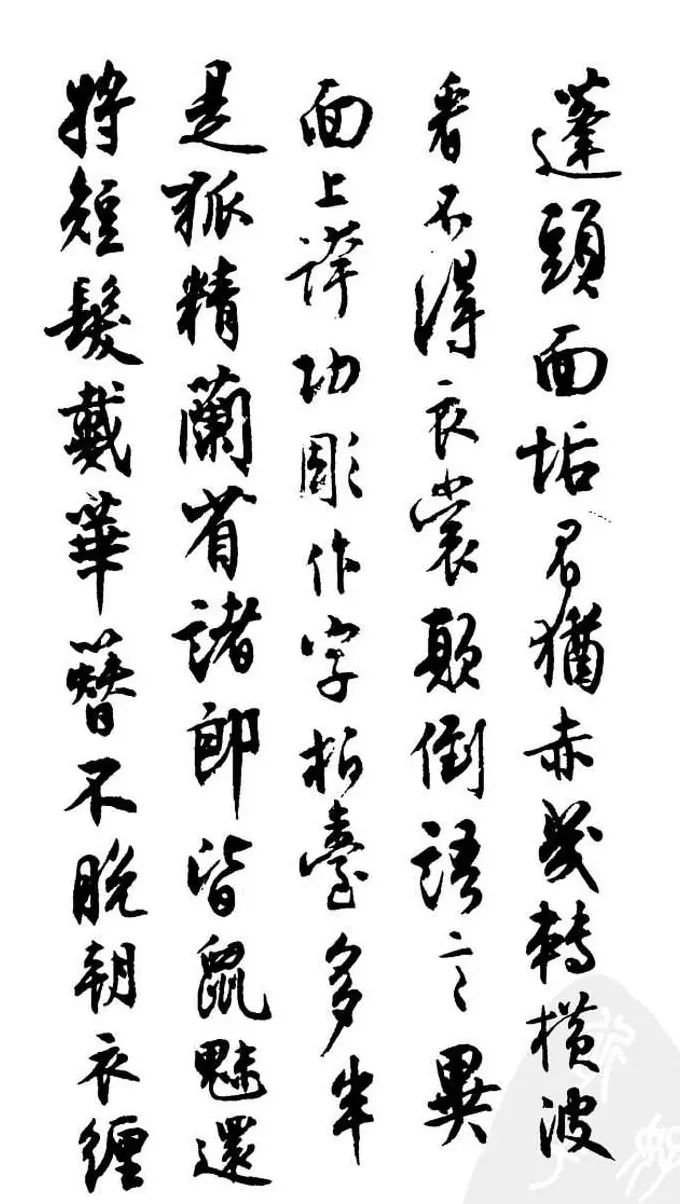 蓬頭面垢眉猶赤幾轉橫波
看不得衣裳顛倒語言異
面上誇功彫作字柏臺多半
是狐精蘭省諸郎皆鼠魅還
將短髮戴華簪不脫朝衣纏